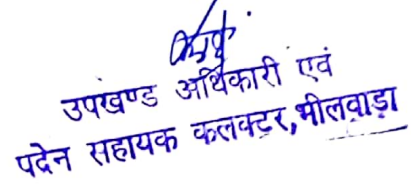 उपखण्ड अधिकारी एवं
पदेन सहायक कलक्टर,भीलवाड़ा